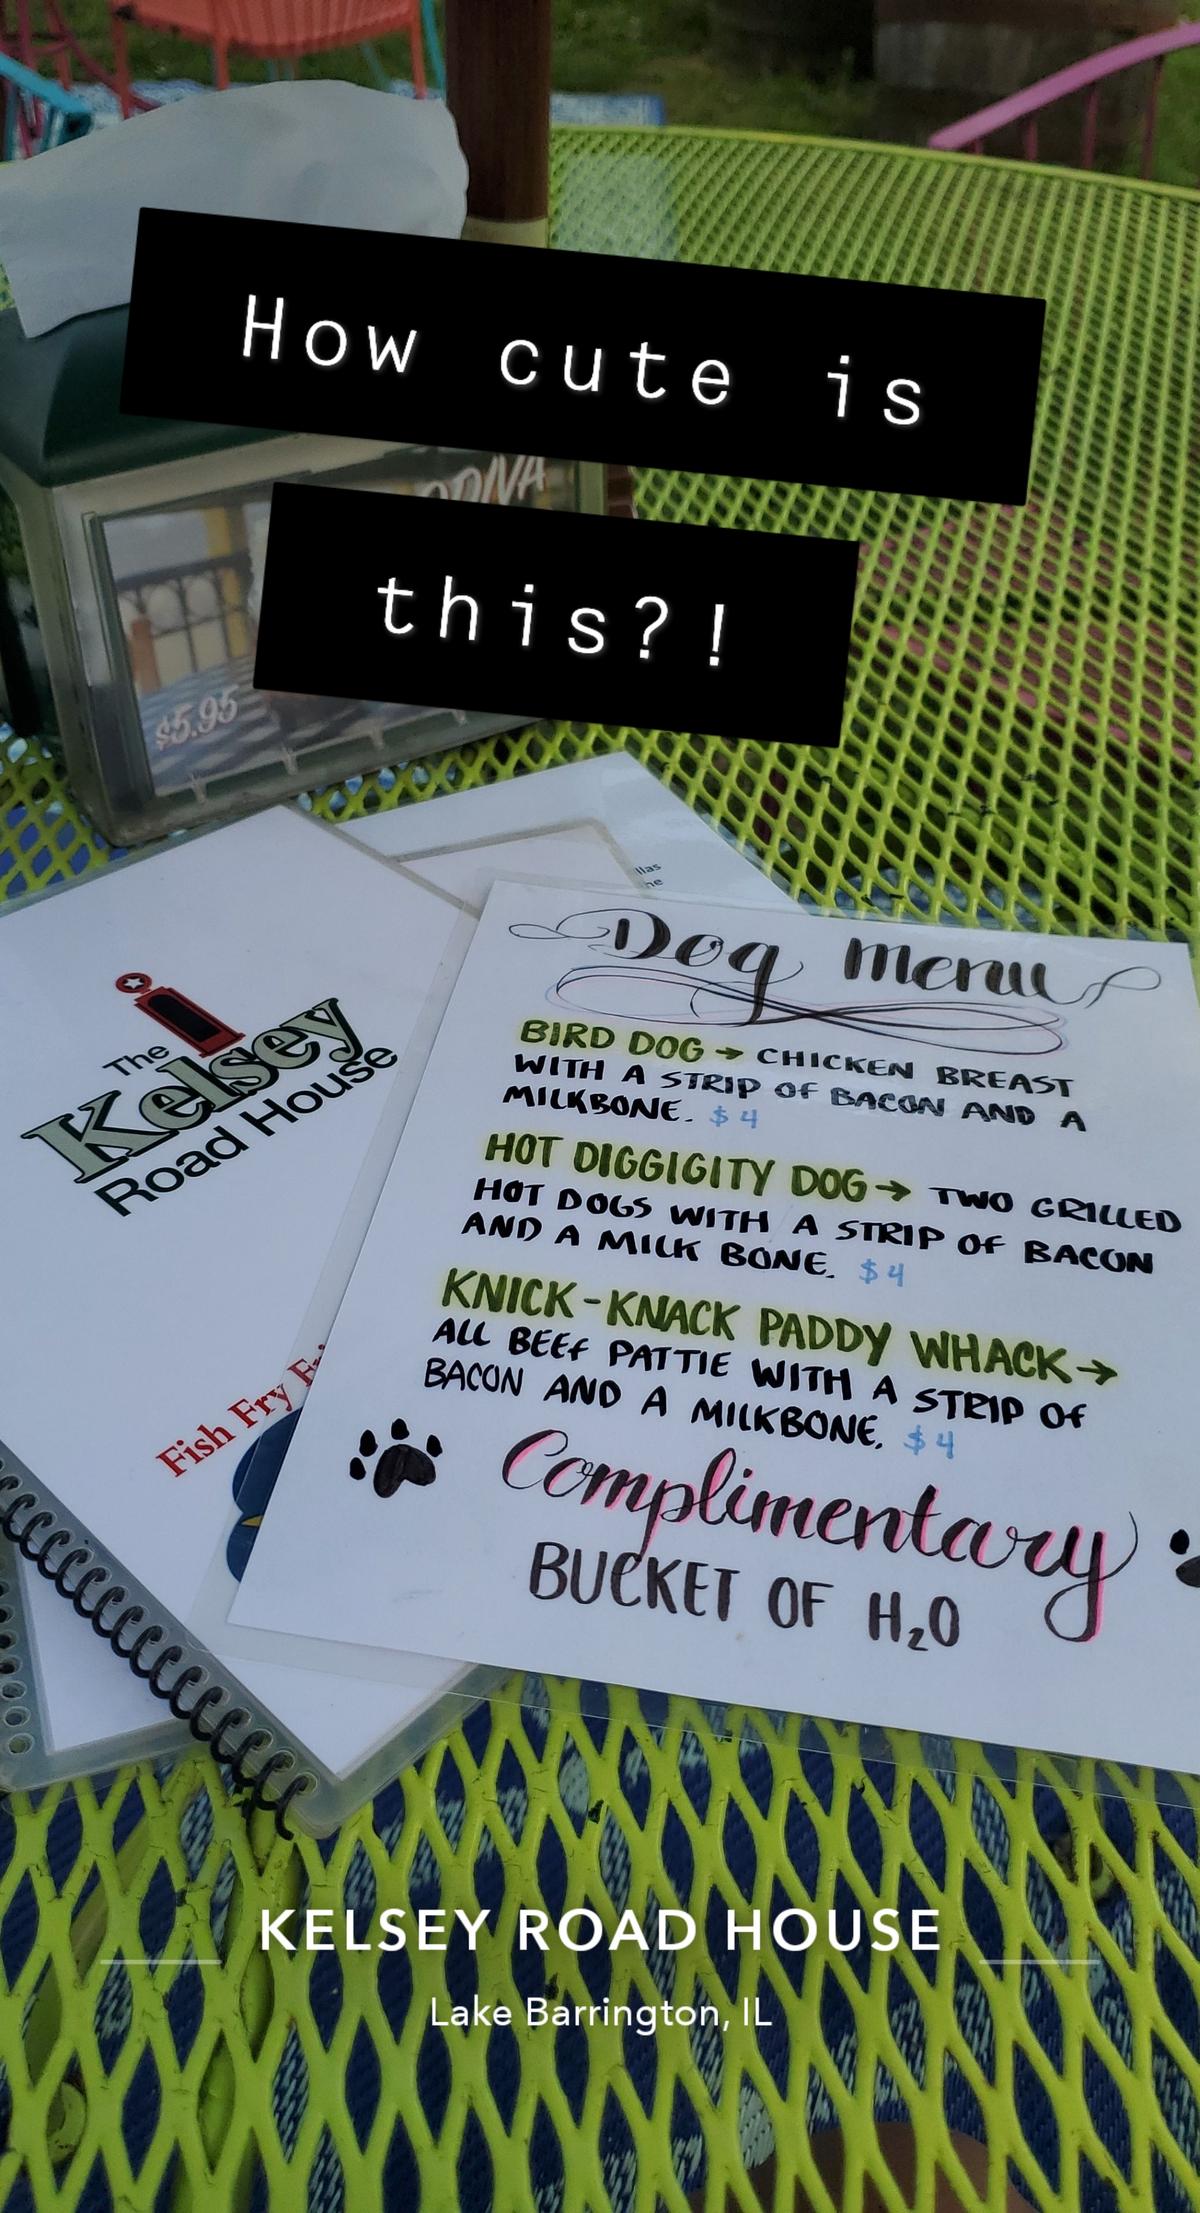 How cute is
this?!
$5.95
The
Kelsey
Road House
Fish Fry
Dog Menu
BIRD DOG → CHICKEN BREAST
WITH A STRIP OF BACON AND A
MILKBONE. $4
HOT DIGGIGITY DOG → TWO GRILLED
HOT DOGS WITH A STRIP OF BACON
AND A MILK BONE. $4
KNICK-KNACK PADDY WHACK →
ALL BEEF PATTIE WITH A STRIP OF
BACON AND A MILKBONE. $4
Complimentary
BUCKET OF H₂O
KELSEY ROAD HOUSE
Lake Barrington, IL